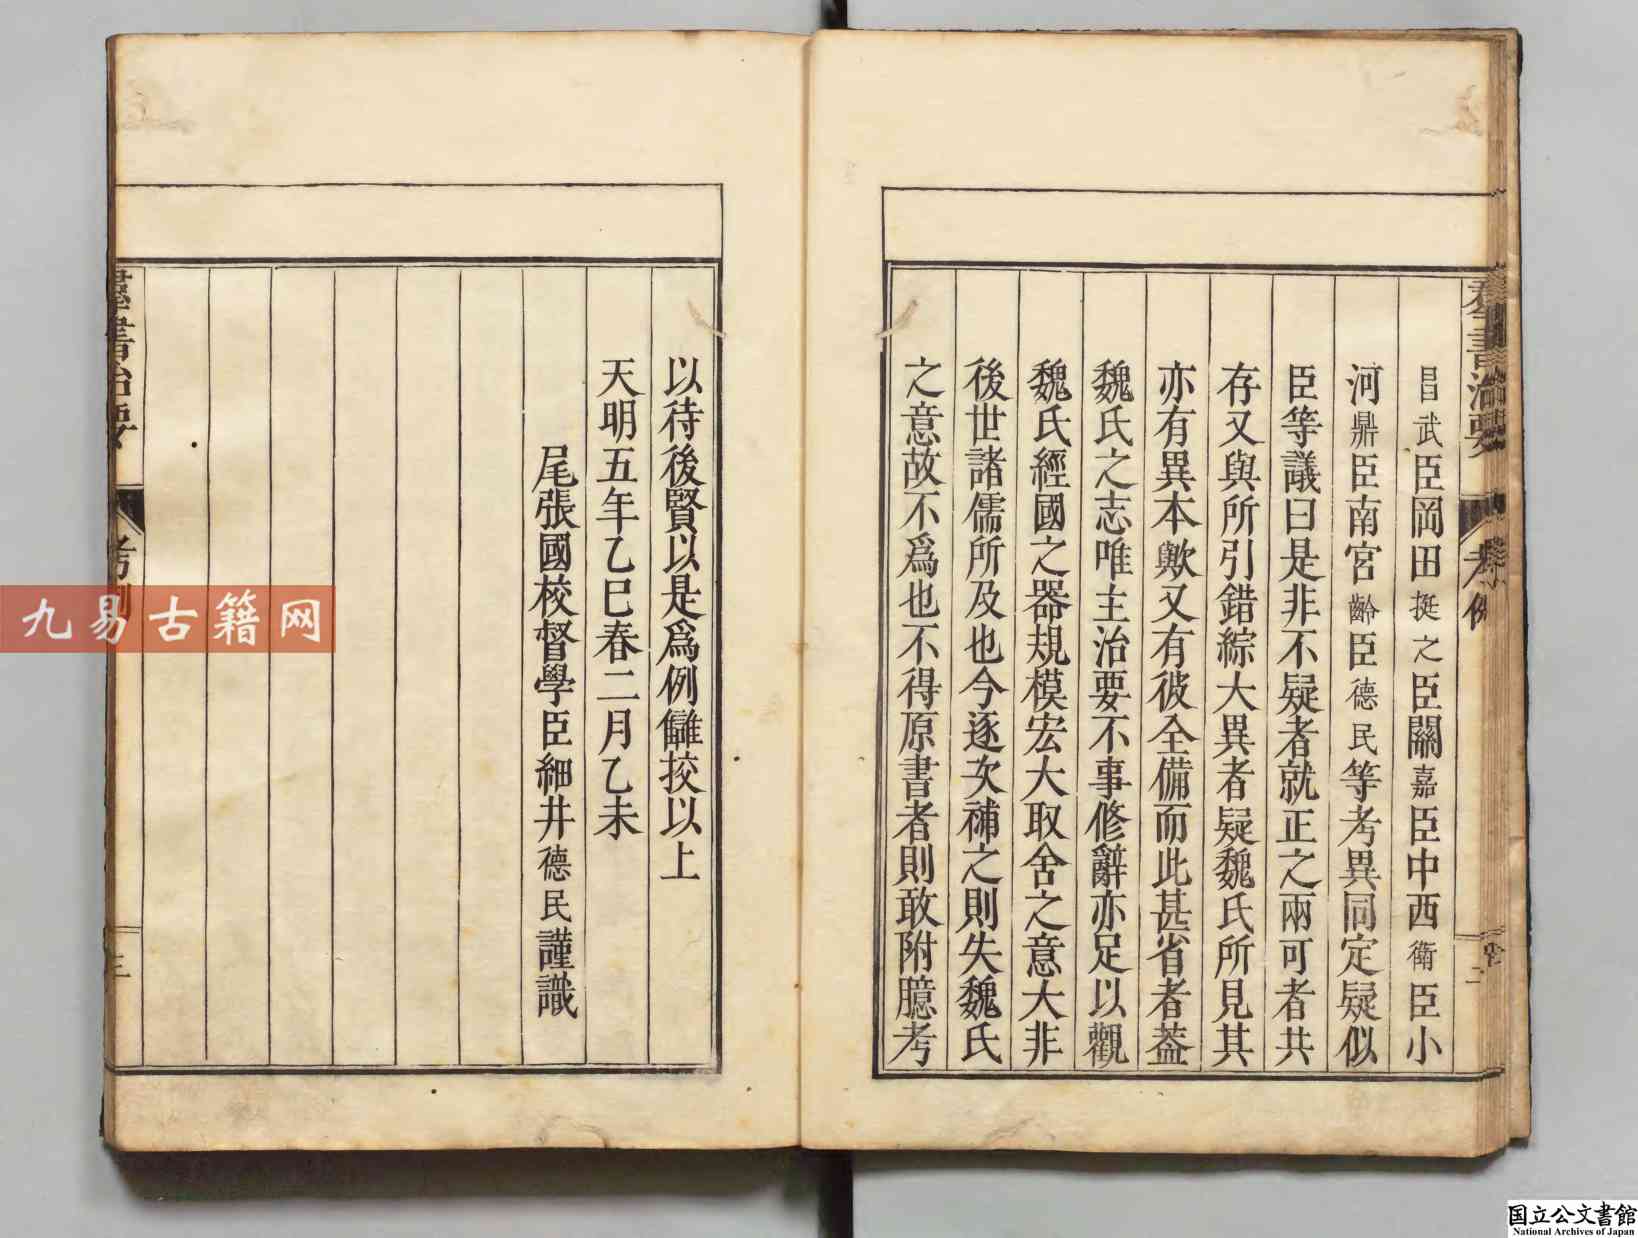 群書治要
考例
二
昌武臣岡田挺之臣關嘉臣中西衛臣小
河鼎臣南宮齡臣德民等考異同定疑似
臣等議曰是非不疑者就正之兩可者共
存又與所引錯綜大異者疑魏氏所見其
亦有異本歟又有彼全備而此甚省者蓋
魏氏之志唯主治要不事修辭亦足以觀
魏氏經國之器規模宏大取舍之意大非
後世諸儒所及也今逐次補之則失魏氏
之意故不爲也不得原書者則敢附臆考
以待後賢以是爲例讎挍以上
天明五年乙巳春二月乙未
尾張國校督學臣細井德民謹識
群書治要
考例
三
九易古籍网
国立公文書館
National Archives of Japan